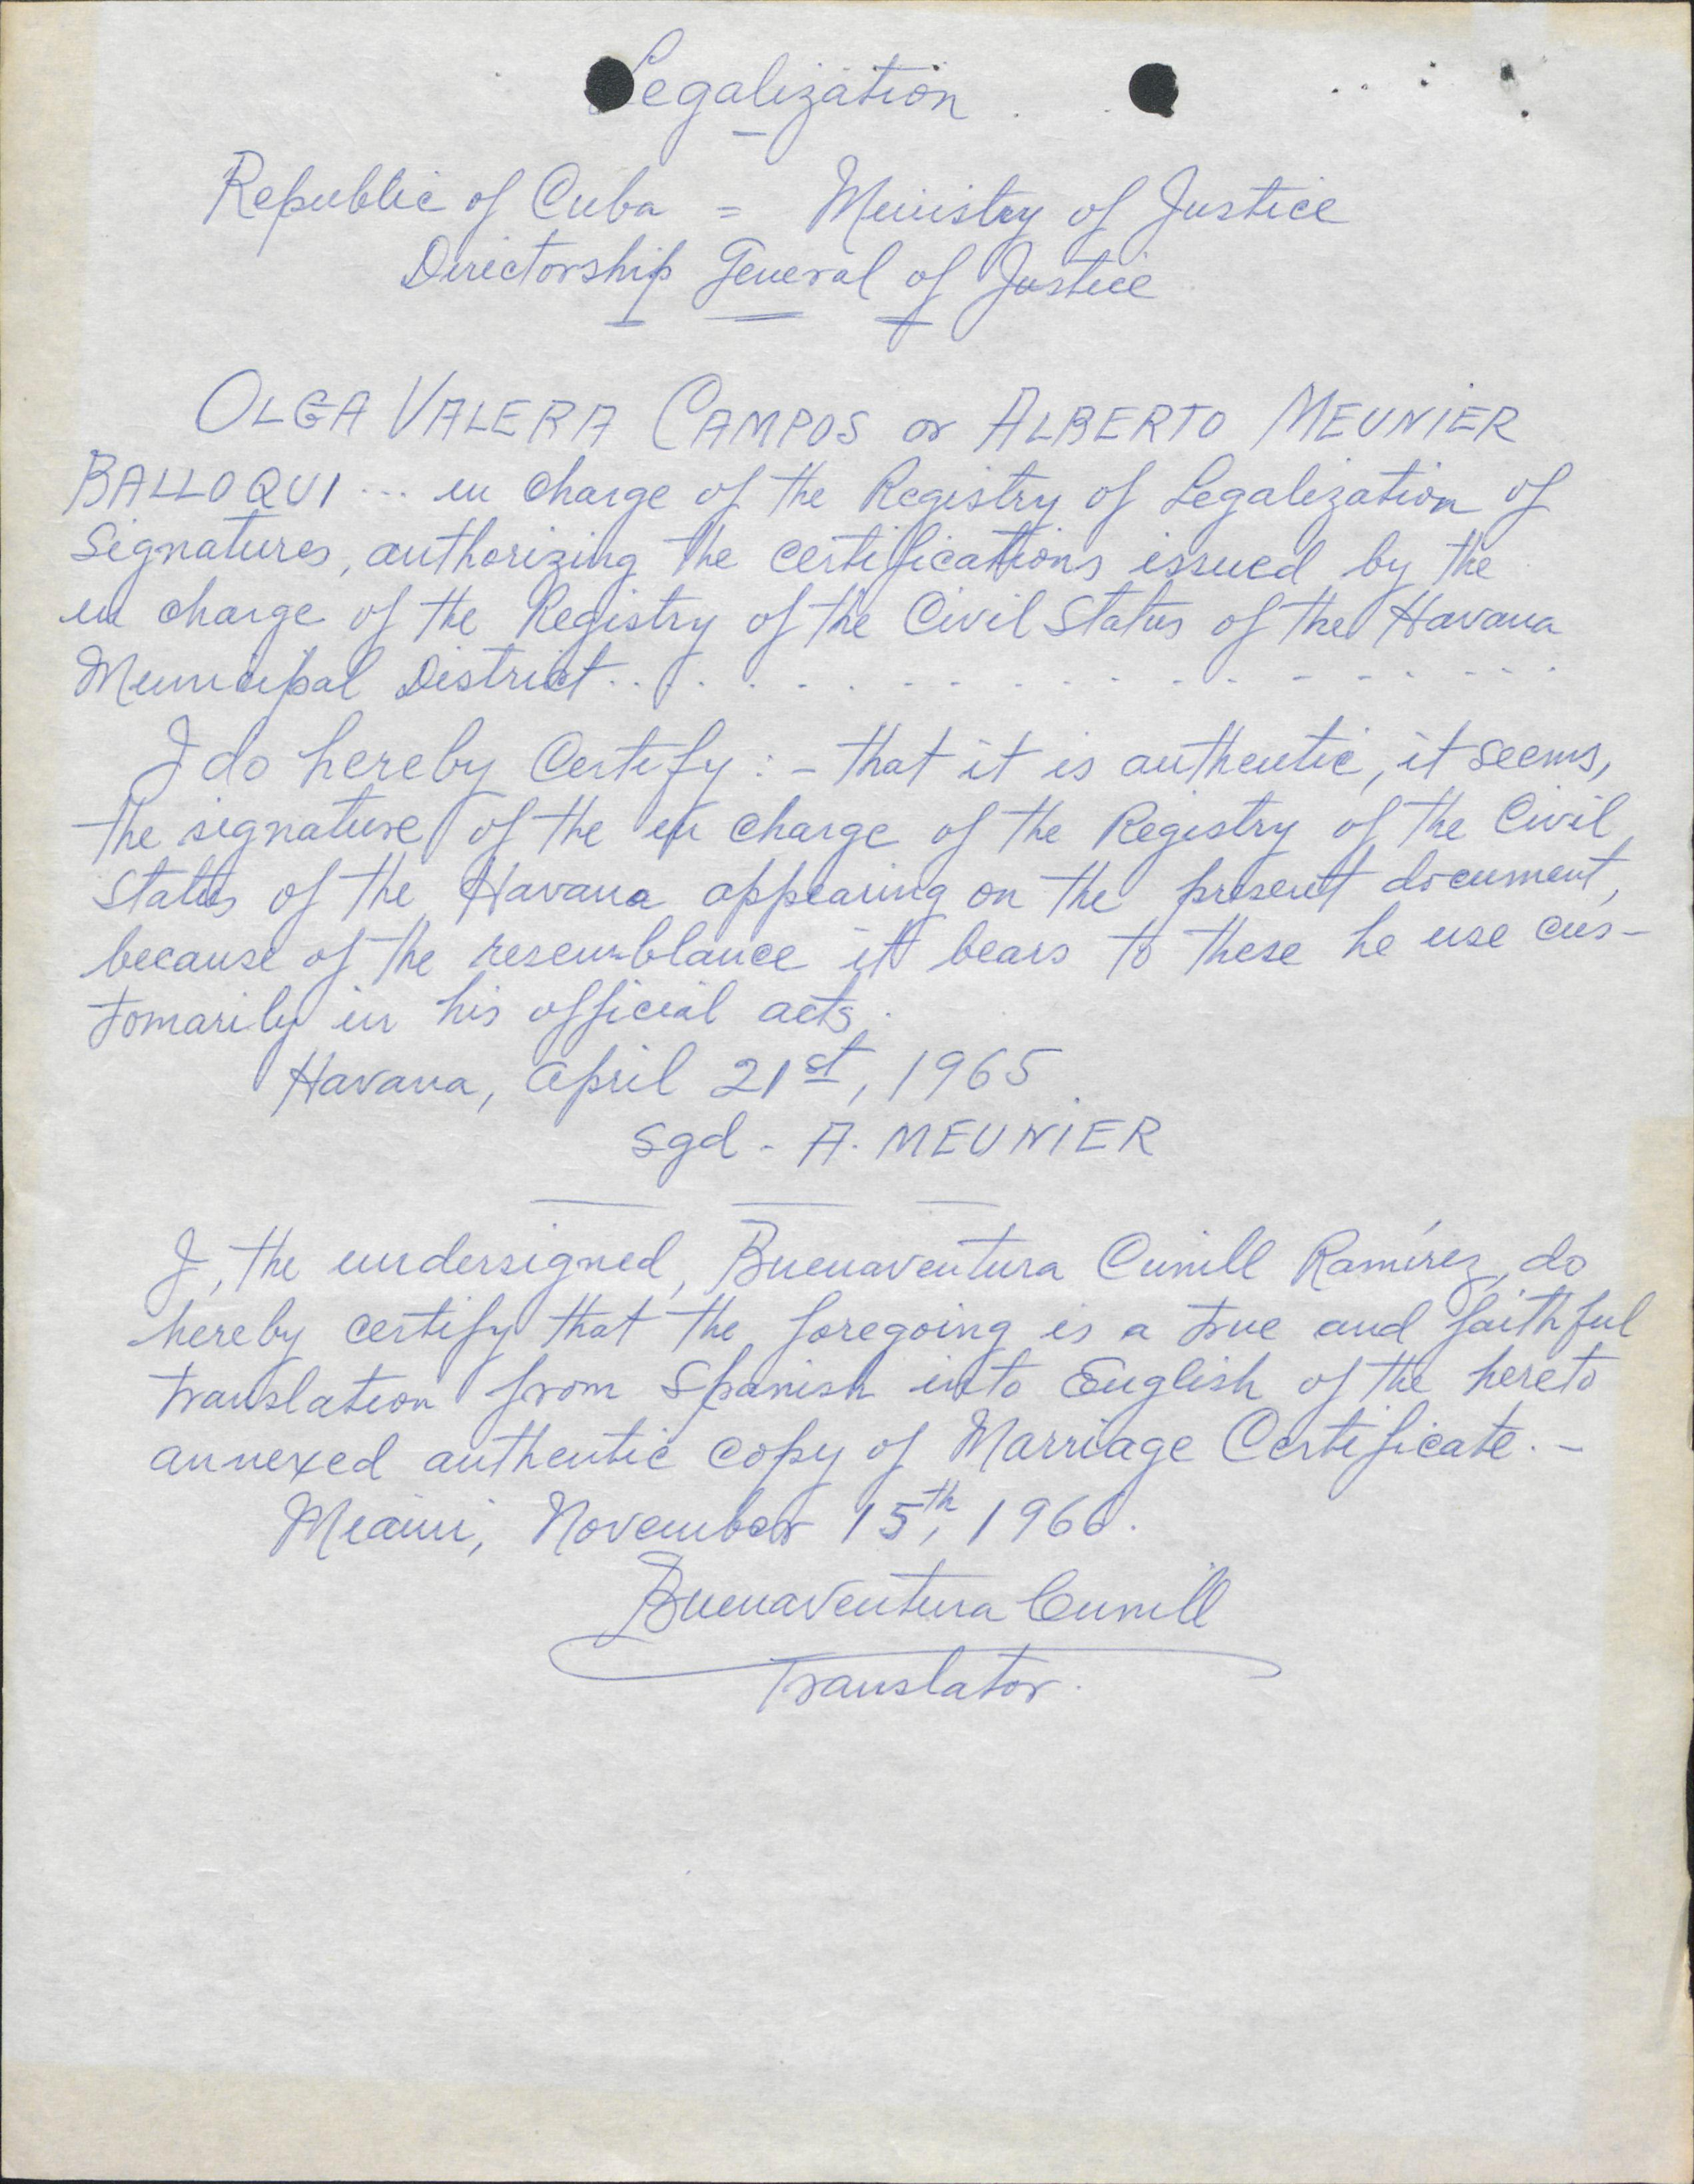 Legalization
Republic of Cuba = Ministry of Justice
Directorship General of Justice
OLGA VALERA CAMPOS or ALBERTO MEUNIER
BALLOQUI ... in charge of the Registry of Legalization of
Signatures, authorizing the certifications issued by the
in charge of the Registry of the Civil Status of the Havana
Municipal District. . . . . . . . . . . . . . . . . .
I do hereby Certify : - that it is authentic, it seems,
the signature of the in charge of the Registry of the Civil
Status of the Havana appearing on the present document,
because of the resemblance it bears to these he use cus-
tomarily in his official acts.
Havana, April 21st, 1965.
Sgd - A. MEUNIER
I, the undersigned, Buenaventura Cunill Ramírez, do
hereby certify that the foregoing is a true and faithful
translation from Spanish into English of the hereto
annexed authentic copy of Marriage Certificate. -
Miami, November 15th, 1966.
Buenaventura Cunill
Translator.